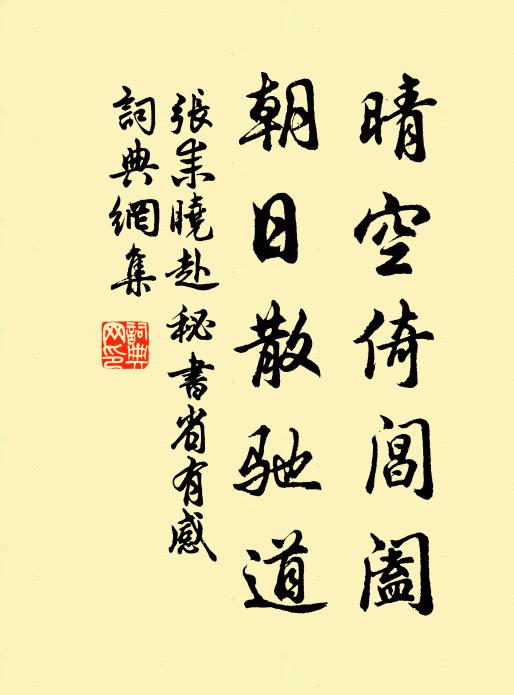 晴空倚閶闔
朝日散馳道
張耒曉赴秘書省有感
詞典網集
詞典網印